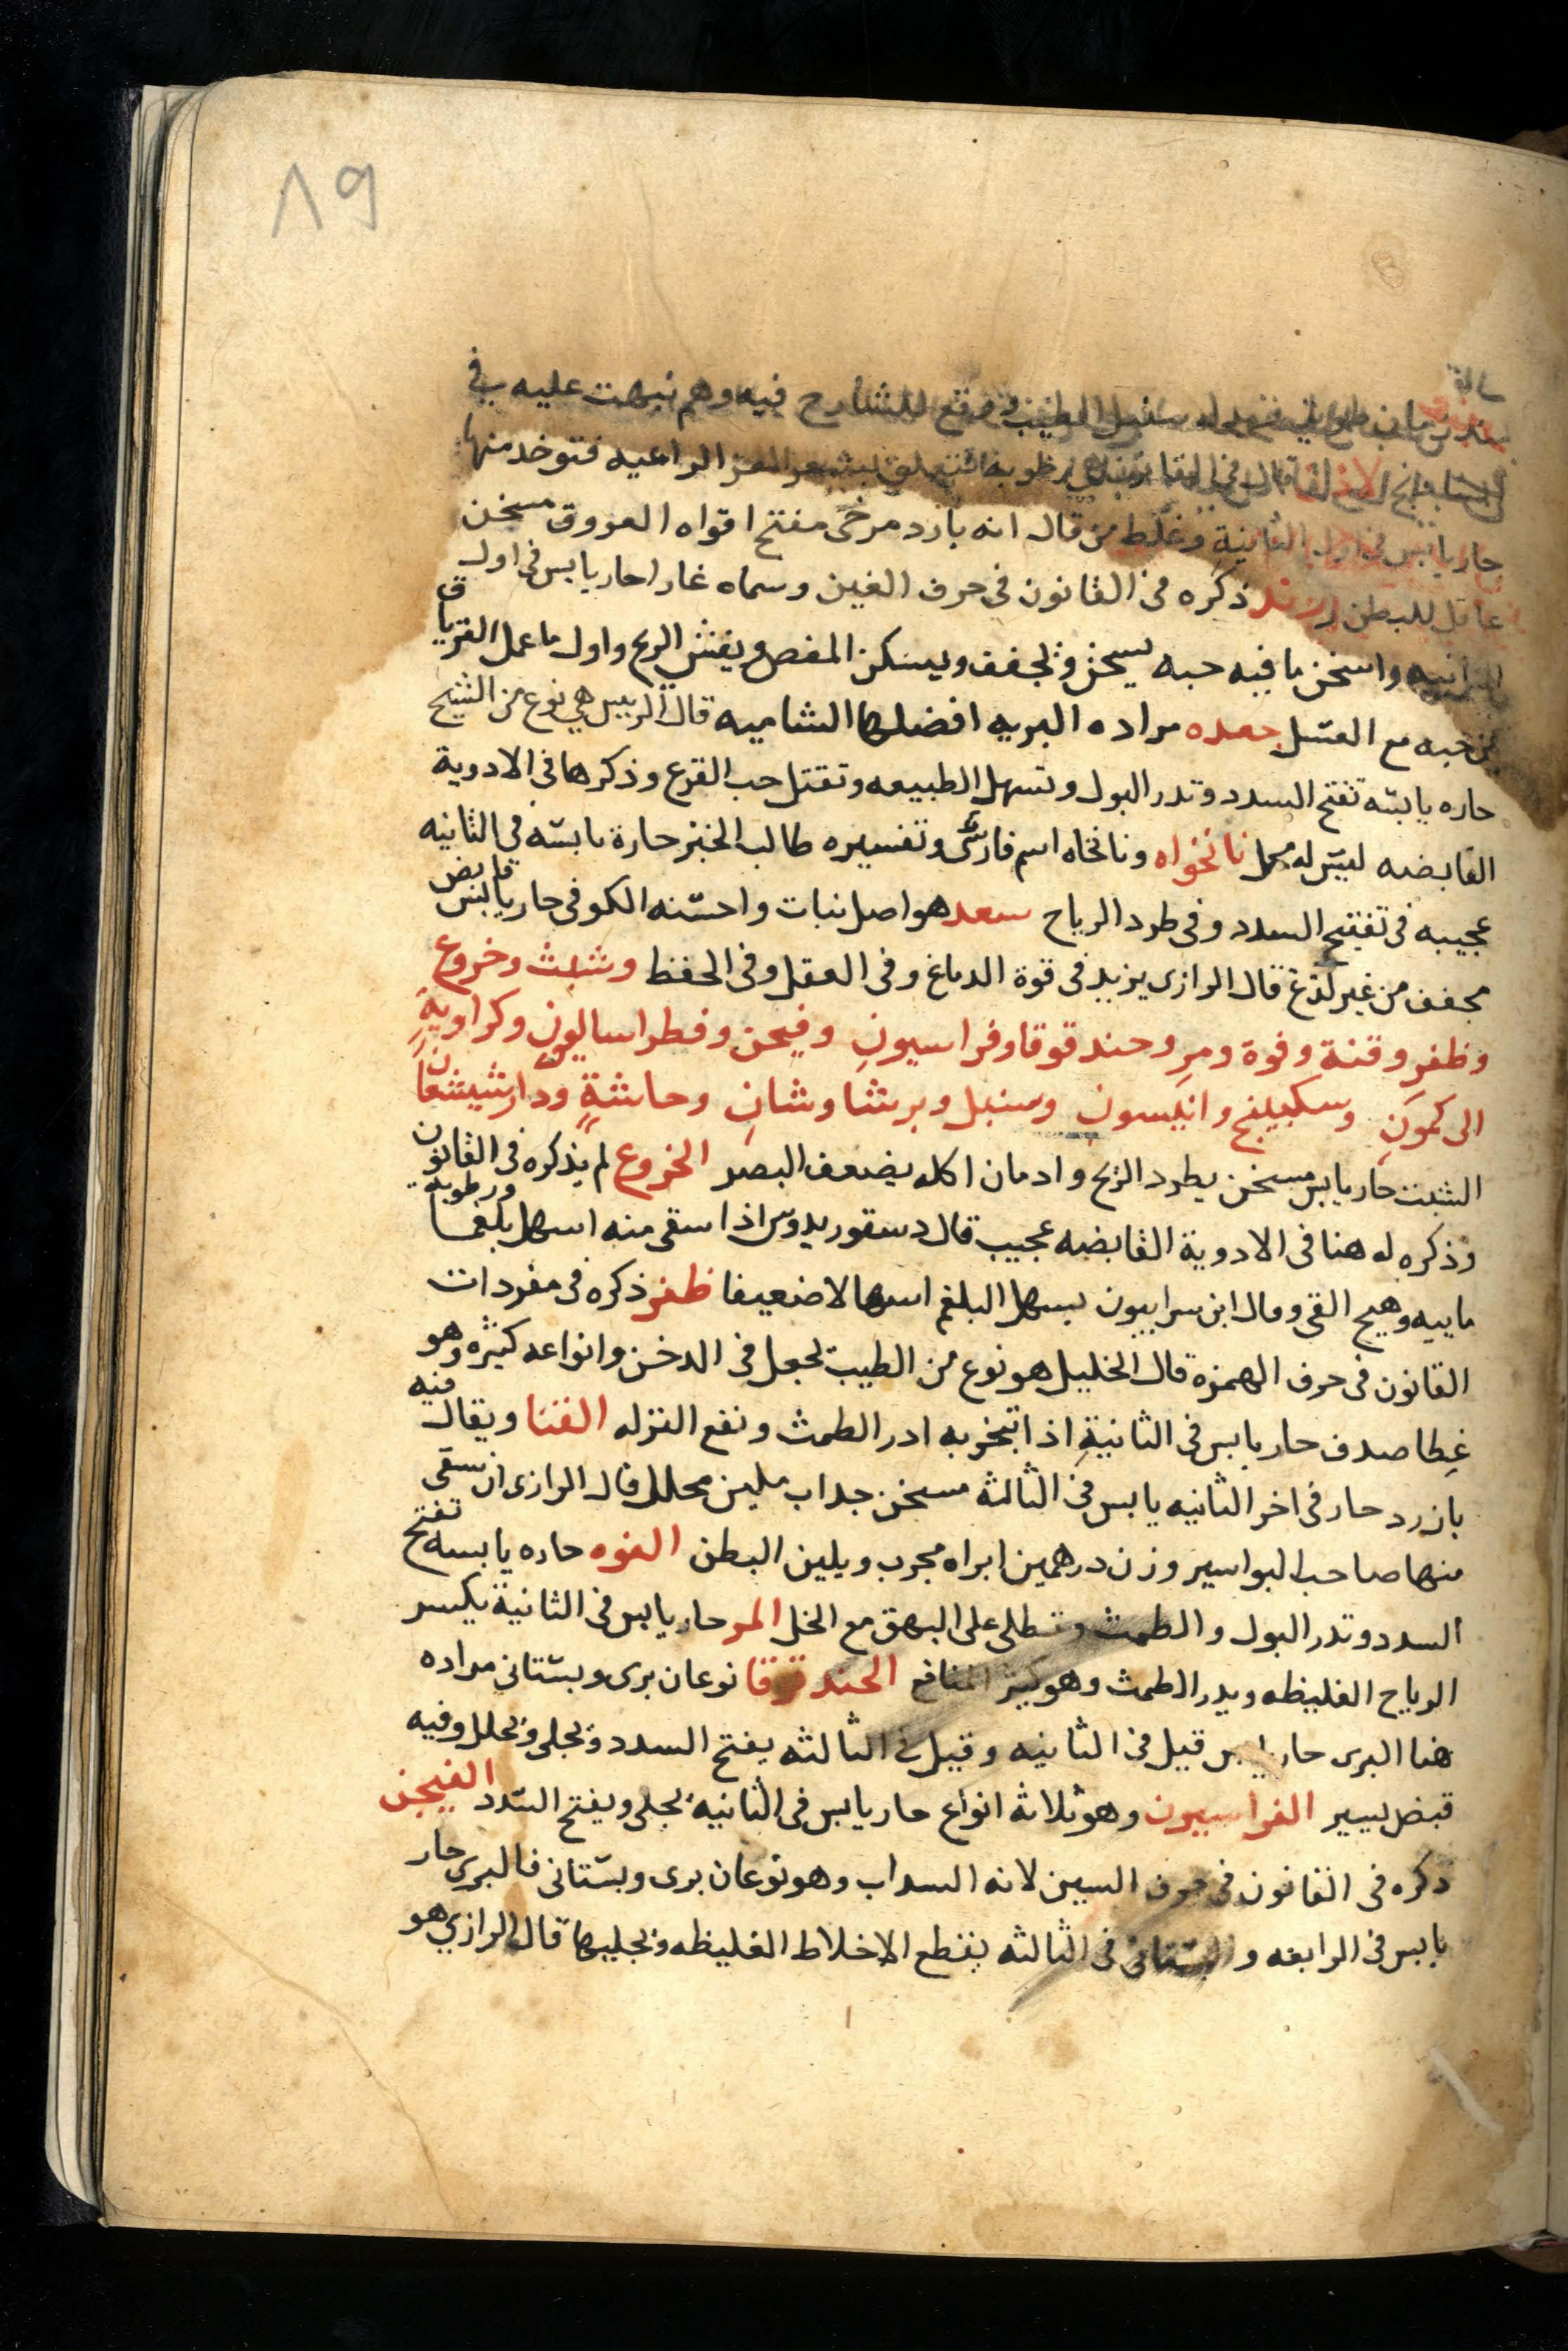 ١٩
فيه وهم نبهت عليه في
الراعيه فتوخد منها
حار يابس في الثانية وغلط من قال انه بارد مرخى مفتح افواه العروق مسخن
عاقل للبطن رند ذكره في القانون في حرف الغين وسماه غارا حار يابس في اول
الثانيه واسخن ما فيه حبه يسخن ويجفف ويسكن المغص ويفش الريح واول ما عمل الترياق
من حبه مع العسل جعده مراده البريه افضلها الشاميه قال الرييس هي نوع من الشيح
حاره يابسه تفتح السدد وتدر البول وتسهل الطبيعه وتقتل حب القرع وذكرها في الادوية
القابضه ليس له محل نانخواه ونانخاه اسم فارسى وتفسيره طالب الخبز حارة يابسه في الثانيه
عجيبه في تفتيح السدد وفي طرد الرياح سعد هو اصل نبات واحسنه الكوفى حار يابس قابض
مجفف من غير لذغ قال الرازى يزيد في قوة الدماغ وفي العقل وفي الحفظ وشبث وخروع
وظفر وقنة وفوة ومر وحندقوقا وفراسيون وفيجن وفطراساليون وكراوية
الى كمون وسكبينج وانيسون وسنبل وبرشاوشان وحاشة ودارشيشعان
الشبث حار يابس مسخن يطرد الريح وادمان اكله يضعف البصر الخروع لم يذكره في القانون
وذكره له هنا في الادوية القابضه عجيب قال دسقوريدوس اذا سقى منه اسهل بلغما ورطوبة
ماييه وهيج القى وقال ابن سرابيون يسهل البلغم اسهالا ضعيفا ظفر ذكره في مفردات
القانون في حرف الهمزة قال الخليل هو نوع من الطيب يجعل في الدخن وانواعه كثيره وهو
غطا صدف حار يابس في الثانية اذا تبخر به ادر الطمث ونفع النزله القنا ويقال فيه
بازرد حار في اخر الثانيه يابس في الثالثه مسخن جداب ملين محلل قال الرازى ان سقى
منها صاحب البواسير وزن درهمين ابراه مجرب ويلين البطن الفوه حاره يابسه تفتح
السدد وتدر البول والطمث وتطلى على البهق مع الخل المر حار يابس في الثانية يكسر
الرياح الغليظه ويدر الطمث وهو كثير المنافع الحندقوقا نوعان برى وبستانى مراده
هنا البرى حار يابس قيل في الثانيه وقيل في الثالثه يفتح السدد ويجلى ويحلل وفيه
قبض يسير الفراسيون وهو ثلاثة انواع حار يابس في الثانيه يجلى ويفتح السدد الفيجن
ذكره في القانون في حرف السين لانه السداب وهو نوعان برى وبستانى فالبرى حار
يابس في الرابعه والبستانى في الثالثه يقطع الاخلاط الغليظه ويجليها قال الرازي هو